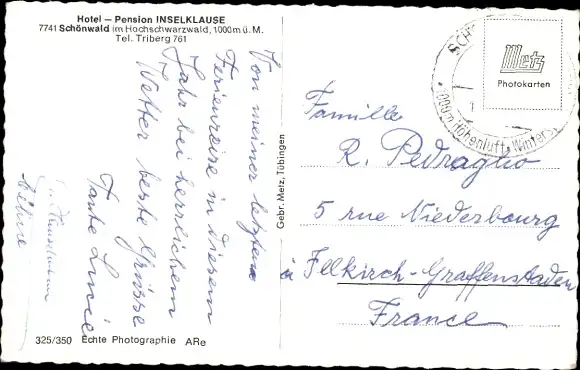 Hotel – Pension INSELKLAUSE
7741 Schönwald im Hochschwarzwald, 1000m ü. M.
Tel. Triberg 761
Von meiner letzten
Ferienreise in diesem
Jahr bei herrlichem
Wetter beste Grüsse
Tante Lucie
Metz
Photokarten
1000m Höhenluft, Winter
Famille
R. Pedraglio
5 rue Niederbourg
à Illkirch-Graffenstaden
France
Gebr. Metz, Tübingen
325/350 Echte Photographie ARe